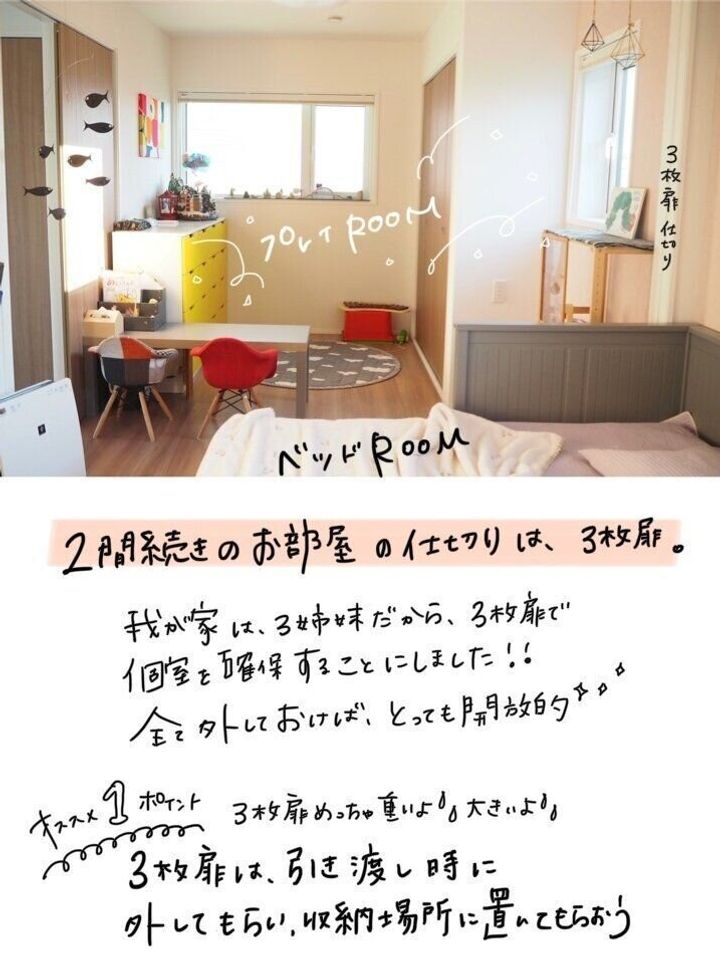 3枚扉仕切り
プレイROOM
ベッドROOM
2間続きのお部屋の仕切りは、3枚扉。
我が家は、3姉妹だから、3枚扉で
個室を確保することにしました!!
全て外しておけば、とっても開放的
オススメ1ポイント
3枚扉めっちゃ重いよ 大きいよ
3枚扉は、引き渡し時に
外してもらい、収納場所に置いてもらおう